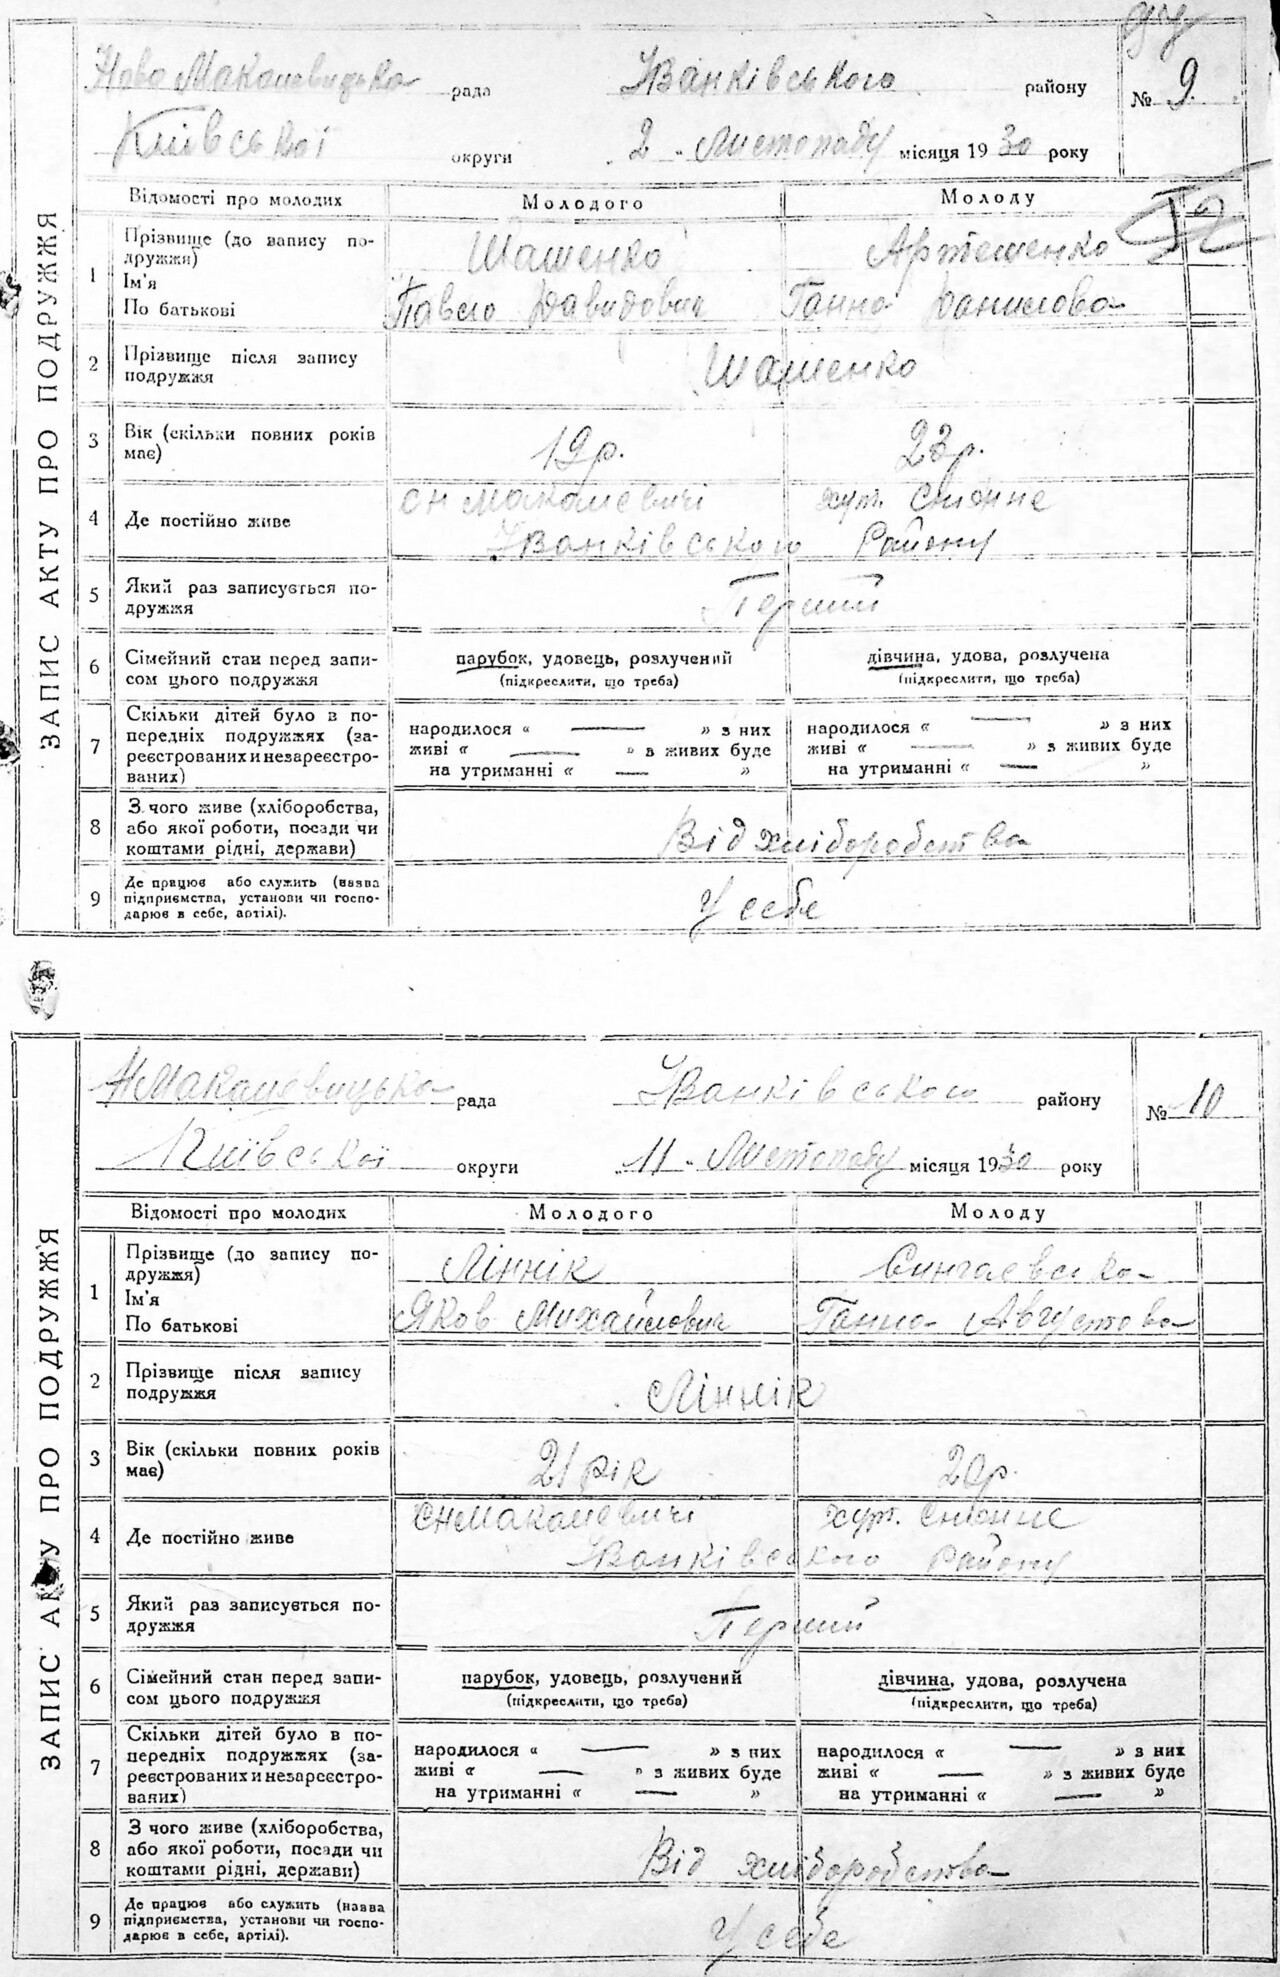 Ново Макалевицька рада Іванківського району № 9
Київської округи 2 Листопаду місяця 1930 року
ЗАПИС АКТУ ПРО ПОДРУЖЖЯ
Відомості про молодих Молодого Молоду
1 Прізвище (до запису по-
дружжя)
Шашенко Артешенко
Ім'я
По батькові
Павло Давидович Ганна Данилова
2 Прізвище після запису
подружжя
Шашенко
3 Вік (скільки повних років
має)
19 р. 23 р.
4 Де постійно живе
с Н Макалевичі хут. Снонне
Іванківського Району
5 Який раз записується по-
дружжя
Перший
6 Сімейний стан перед запи-
сом цього подружжя
парубок, удовець, розлучений дівчина, удова, розлучена
(підкреслити, що треба) (підкреслити, що треба)
7 Скільки дітей було в по-
передніх подружжях (за-
реєстрованих и незареєстро-
ваних)
народилося « — » з них народилося « — » з них
живі « — » з живих буде живі « — » з живих буде
на утриманні « — » на утриманні « — »
8 З чого живе (хліборобства,
або якої роботи, посади чи
коштами рідні, держави)
Від хліборобства
9 Де працює або служить (назва
підприємства, установи чи госпо-
дарює в себе, артілі).
У себе
Н Макалевицька рада Іванківського району № 10
Київської округи 11 Листопаду місяця 1930 року
ЗАПИС АКТУ ПРО ПОДРУЖЖЯ
Відомості про молодих Молодого Молоду
1 Прізвище (до запису по-
дружжя)
Ліннік Сингаєвська
Ім'я
По батькові
Яков Михайлович Ганна Августова
2 Прізвище після запису
подружжя
Ліннік
3 Вік (скільки повних років
має)
21 рік 20 р.
4 Де постійно живе
с Н Макалевичі хут. Снонне
Іванківського Району
5 Який раз записується по-
дружжя
Перший
6 Сімейний стан перед запи-
сом цього подружжя
парубок, удовець, розлучений дівчина, удова, розлучена
(підкреслити, що треба) (підкреслити, що треба)
7 Скільки дітей було в по-
передніх подружжях (за-
реєстрованих и незареєстро-
ваних)
народилося « — » з них народилося « — » з них
живі « — » з живих буде живі « — » з живих буде
на утриманні « — » на утриманні « — »
8 З чого живе (хліборобства,
або якої роботи, посади чи
коштами рідні, держави)
Від хліборобства
9 Де працює або служить (назва
підприємства, установи чи госпо-
дарює в себе, артілі).
У себе